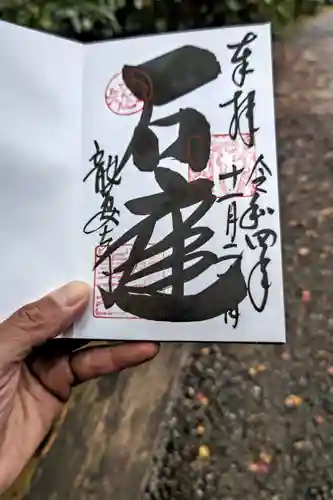 奉拝
令和四年
十一月二日
石庭
龍安寺